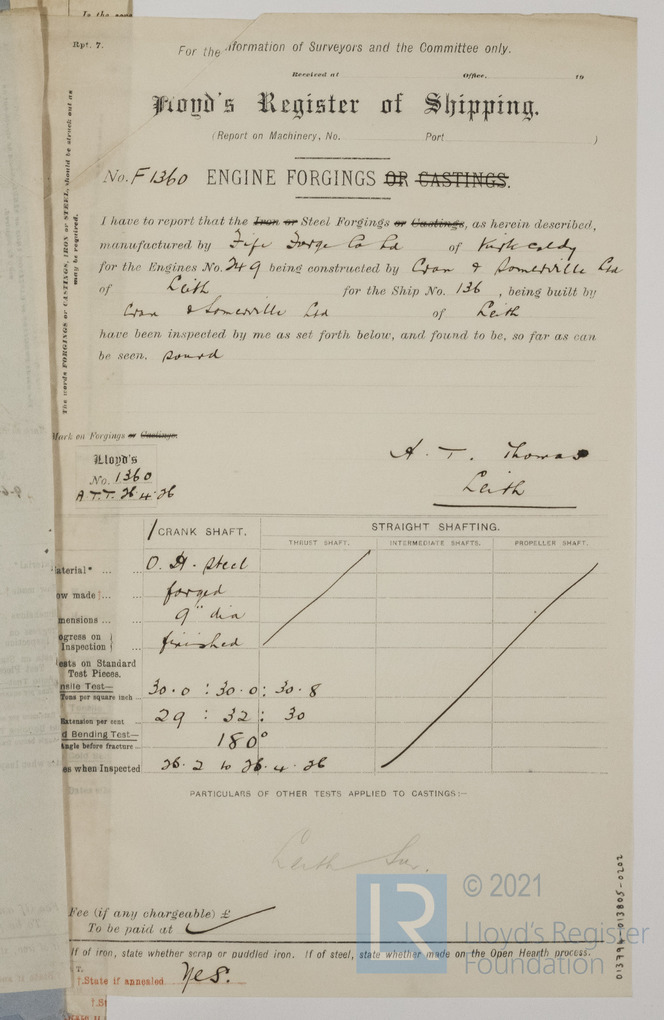 In the
Rpt. 7.
For the information of Surveyors and the Committee only.
Received at Office, 19
Lloyd's Register of Shipping.
(Report on Machinery, No. Port )
No. F 1360 ENGINE FORGINGS OR CASTINGS.
The words FORGINGS or CASTINGS, IRON or STEEL, should be struck out as
may be required.
I have to report that the Iron or Steel Forgings or Castings, as herein described,
manufactured by Fife Forge Co Ld of Kirkcaldy
for the Engines No. 249 being constructed by Cran & Somerville Ltd
of Leith for the Ship No. 136, being built by
Cran & Somerville Ltd of Leith
have been inspected by me as set forth below, and found to be, so far as can
be seen, sound
Mark on Forgings or Castings.
Lloyd's
No. 1360
A.T.T. 26.4.26
A. T. Thomas
Leith
1 CRANK SHAFT. STRAIGHT SHAFTING.
THRUST SHAFT. INTERMEDIATE SHAFTS. PROPELLER SHAFT.
aterial* ... ... O. H. steel
ow made†... ... forged
mensions ... ... 9" dia
ogress on
Inspection ... finished
ests on Standard
Test Pieces.
nsile Test—
Tons per square inch ... 30.0 : 30.0 : 30.8
Extension per cent 29 : 32 : 30
d Bending Test—
Angle before fracture ... 180°
es when Inspected 26.2 to 26.4.26
PARTICULARS OF OTHER TESTS APPLIED TO CASTINGS:—
Leith Sur.
Fee (if any chargeable) £
To be paid at
If of iron, state whether scrap or puddled iron. If of steel, state whether made on the Open Hearth process.
T.
†.State if annealed Yes.
†.St
© 2021
Lloyd's Register
Foundation
013794-013805-0202